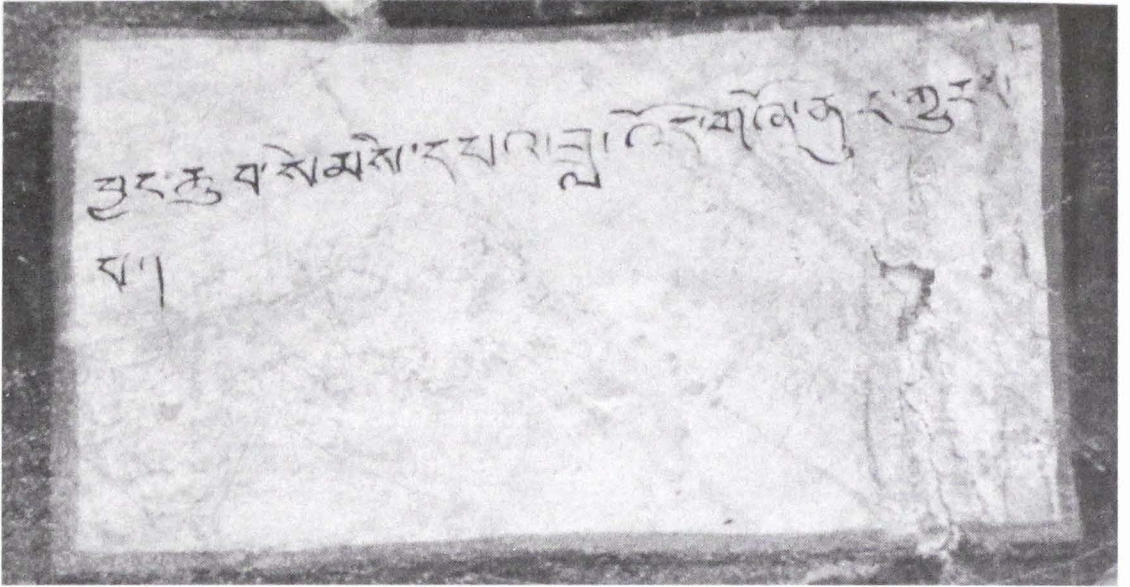 བྱང་ཆུབ་སེམས་དཔའ་ཟླ་འོད་གཞོན་ནུར་གྱུརད་
པ།